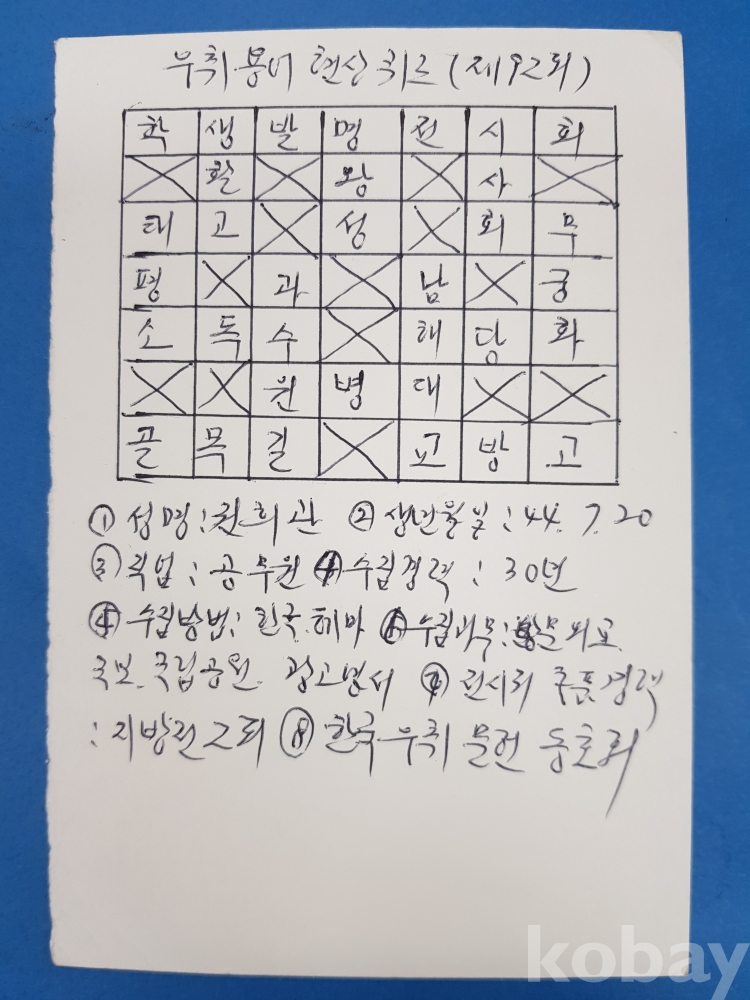 우취용어 현상퀴즈(제92회)
학 생 발 명 전 시 회
X 활 X 왕 X 사 X
태 고 X 성 X 회 무
평 X 과 X 남 X 궁
소 독 수 X 해 당 화
X X 원 병 대 X X
골 목 길 X 교 방 고
① 성명: 권희관 ② 생년월일: 44. 7. 20
③ 직업: 공무원 ④ 수집경력: 30년
수집방법: 한국. 헤마 ⑥ 수집과목: 외교
국보. 국립공원. 광고엽서 ⑦ 전시회 출품경력
: 지방전 2회 ⑧ 한국우취 문헌 동호회
kobay